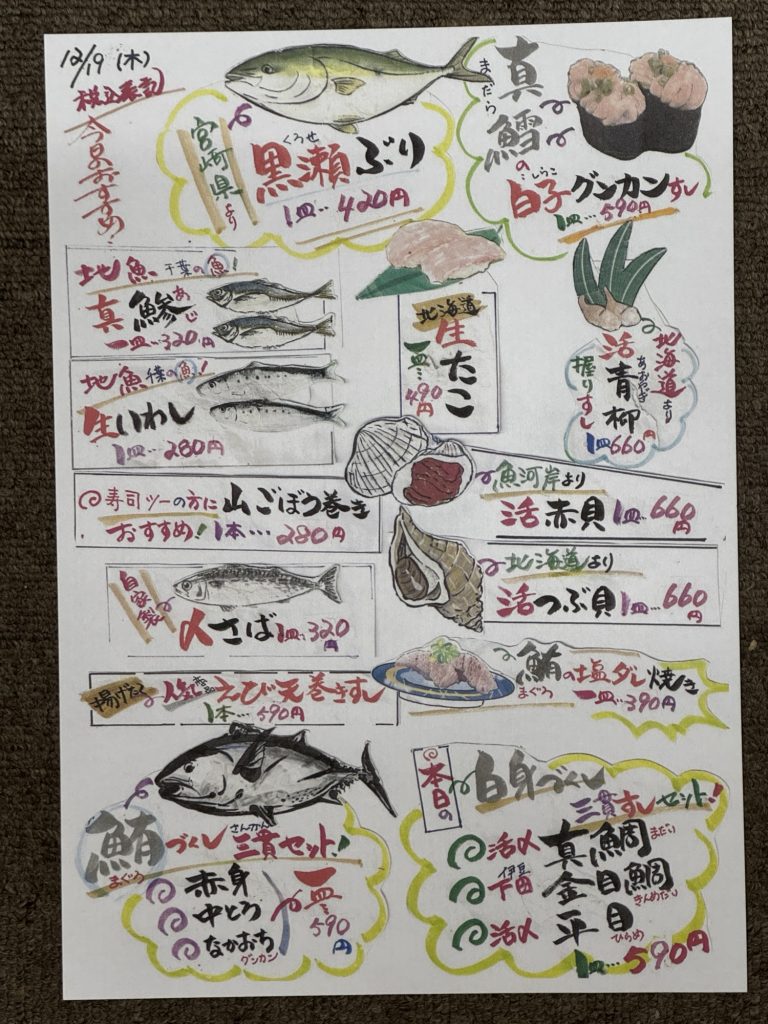 12/19(木)
税込表記
今日のおすすめ
宮崎県より
くろせ
黒瀬ぶり
1皿…420円
まだら
真鱈の
しらこ
白子グンカンすし
1皿…590円
地魚 千葉の魚!
真鯵
あじ
一皿…320円
地魚 千葉の魚!
生いわし
1皿…280円
北海道
生たこ
一皿…490円
北海道より
活青柳
あおやぎ
握りすし
1皿660円
寿司ツーの方に
おすすめ!
山ごぼう巻き
1本…280円
魚河岸より
活赤貝 1皿…660円
北海道より
活つぶ貝 1皿…660円
自家製
〆さば 1皿…320円
揚げたて
人気商品
えび天巻きすし
1本…590円
鮪の塩ダレ焼き
まぐろ
一皿…390円
鮪づくし
まぐろ
さんかん
三貫セット!
赤身
中とろ
なかおち
グンカン
一皿…590円
本日の
白身づくし
三貫すしセット!
活〆 真鯛
まだい
伊豆
下田 金目鯛
きんめだい
活〆 平目
ひらめ
1皿…590円